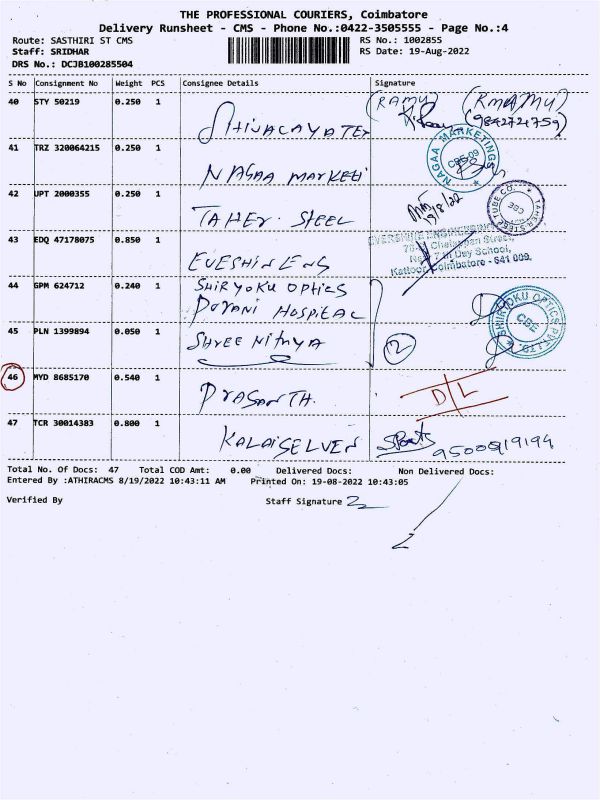 THE PROFESSIONAL COURIERS, Coimbatore
Delivery Runsheet - CMS - Phone No.:0422-3505555 - Page No.:4
Route: SASTHIRI ST CMS RS No.: 1002855
Staff: SRIDHAR RS Date: 19-Aug-2022
DRS No.: DCJB100285504
S No Consignment No Weight PCS Consignee Details Signature
40 STY 50219 0.250 1 (RAMU)
(9842721759)
41 TRZ 320064215 0.250 1 NAGAA MARKETI NAGAA MARKETINGS CBE-09
42 UPT 2000355 0.250 1 TAHER STEEL 19/8/22 TAHER STEEL TUBE CO. CBE
43 EDQ 47178075 0.850 1 EVESHIN ENG EVERSHINE ENGINEERING
Day School,
Kattoor, Coimbatore - 641 009.
44 GPM 624712 0.240 1 SHIRYOKU OPTICS
HOSPITAL SHIRYOKU OPTICS PVT LTD CBE
45 PLN 1399894 0.050 1 SHREE NITHYA 2
46 MYD 8685170 0.540 1 PRASANTH. D/L
47 TCR 30014383 0.800 1 KALAISELVEN 9500819194
Total No. Of Docs: 47 Total COD Amt: 0.00 Delivered Docs: Non Delivered Docs:
Entered By :ATHIRACMS 8/19/2022 10:43:11 AM Printed On: 19-08-2022 10:43:05
Verified By Staff Signature